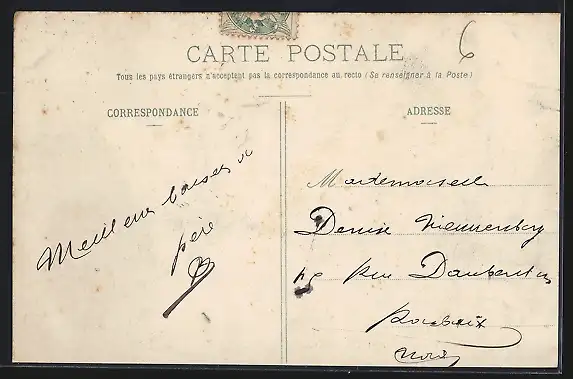 6
CARTE POSTALE
Tous les pays étrangers n'acceptent pas la correspondance au recto (Se renseigner à la Poste)
CORRESPONDANCE
ADRESSE
Meilleurs baisers
père
Mademoiselle
Denise
Rue Daubenton
Roubaix
Nord